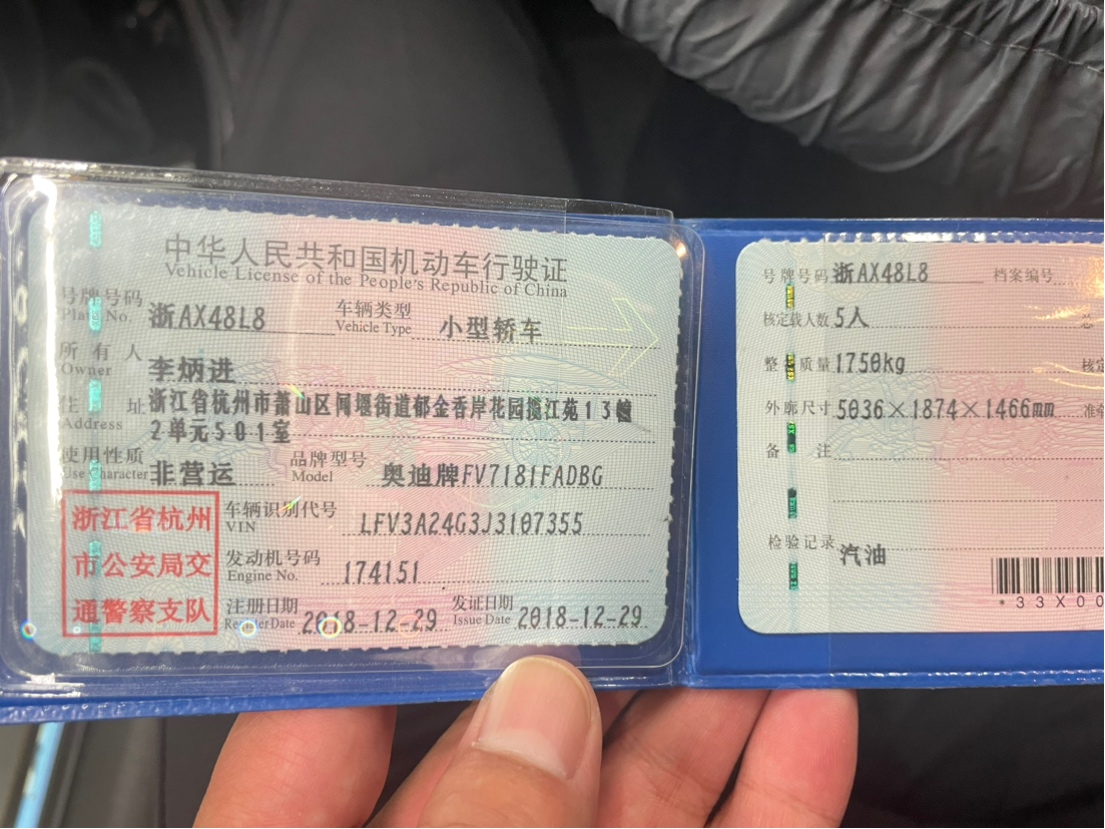 中华人民共和国机动车行驶证
Vehicle License of the People's Republic of China
号牌号码 浙AX48L8 车辆类型 小型轿车
Plate No. Vehicle Type
所有人 李炳进
Owner
住址 浙江省杭州市萧山区闻堰街道郁金香岸花园揽江苑13幢
Address 2单元501室
使用性质 非营运 品牌型号 奥迪牌FV7181FADBG
Use Character Model
浙江省杭州
市公安局交
通警察支队
车辆识别代号 LFV3A24G3J3107355
VIN
发动机号码 174151
Engine No.
注册日期 2018-12-29 发证日期 2018-12-29
Register Date Issue Date
号牌号码 浙AX48L8 档案编号
核定载人数 5人
整备质量 1750kg 核定
外廓尺寸 5036×1874×1466mm 准牵
备注
检验记录 汽油
*33X00